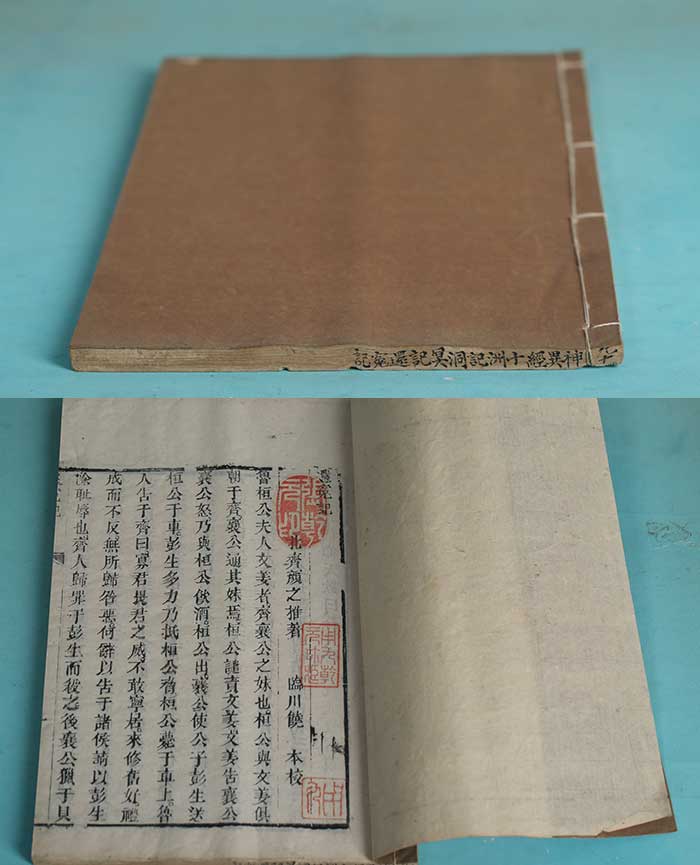 神異經十洲記洞冥記還寃記
還寃記
北齊顏之推著 臨川饒 本校
魯桓公夫人文姜者齊襄公之妹也桓公與文姜俱
朝于齊襄公通其妹焉桓公譴責文姜文姜告襄公
襄公怒乃與桓公飲酒桓公出襄公使公子彭生送
桓公于車彭生多力乃抵桓公脅桓公薨于車上魯
人告于齊曰寡君畏君之威不敢寧居來修舊好禮
成而不反無所歸咎惡辭以告于諸侯請以彭生
除恥辱也齊人歸罪于彭生而殺之後襄公獵于貝